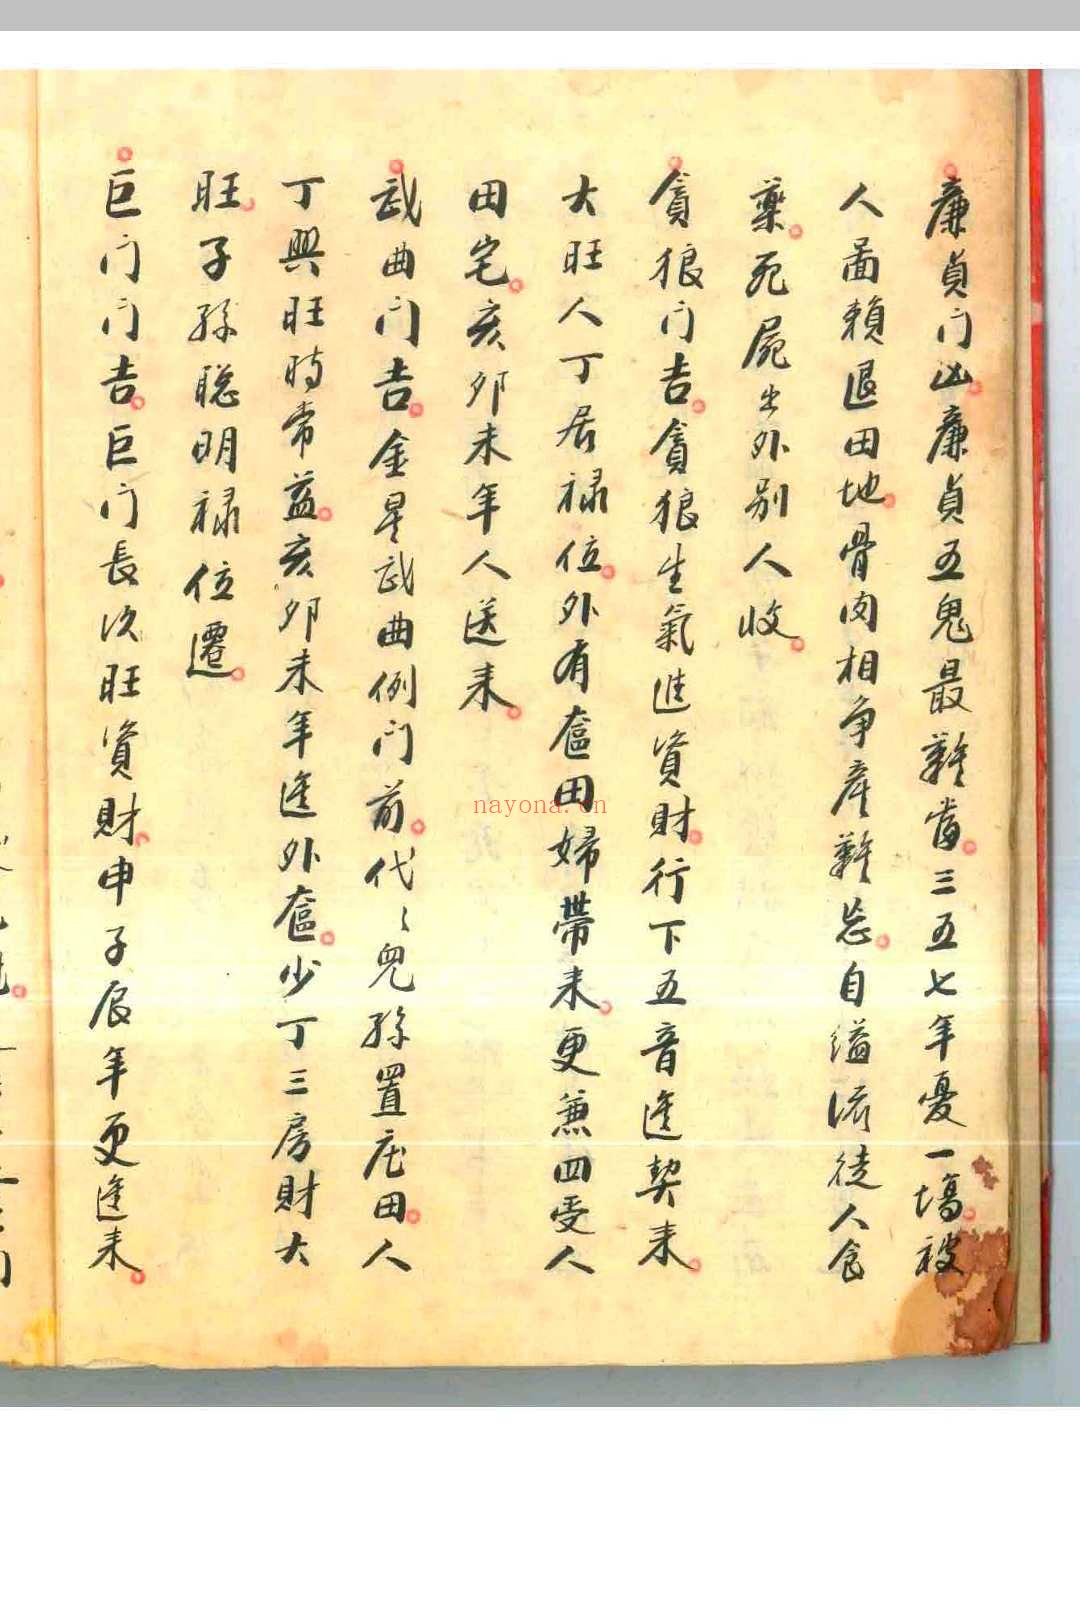 廉貞门凶廉貞五鬼最難當三五七年憂一塲被
人啚賴退田地骨肉相争産難忘自縊流徒人食
藥死屍出外别人收
貪狼门吉貪狼生氣進資財行下五音進契来
大旺人丁居禄位外有奩田婦帶来更兼四受人
田宅亥卯未年人送来
武曲门吉金星武曲例门前代〻児孫置庄田人
丁興旺時常益亥卯未年進外奩少丁三房財大
旺子孫聪明禄位遷
巨门门吉巨门長次旺資財申子辰年更進来
nayona.cn